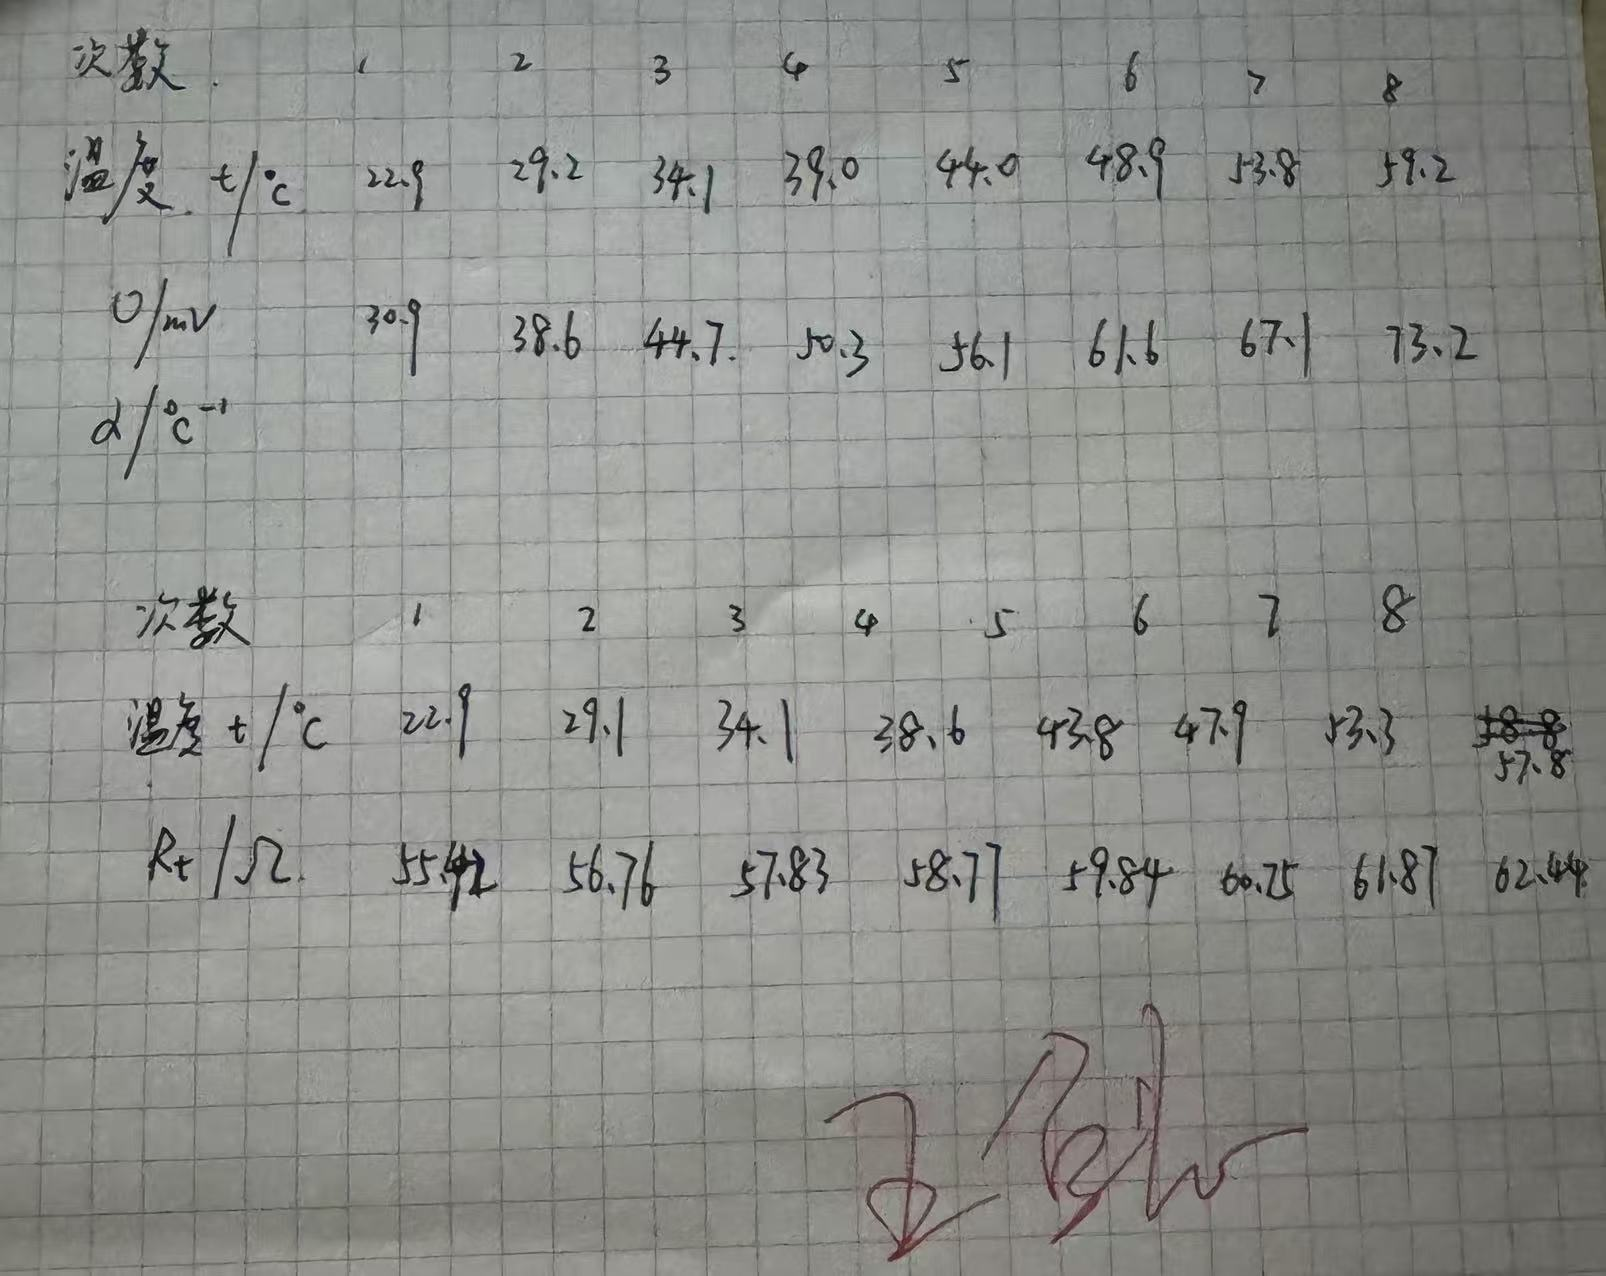 次数 1 2 3 4 5 6 7 8
温度 t/°C 22.9 29.2 34.1 39.0 44.0 48.9 53.8 59.2
U/mV 30.9 38.6 44.7 50.3 56.1 61.6 67.1 73.2
α/°C⁻¹
次数 1 2 3 4 5 6 7 8
温度 t/°C 22.9 29.1 34.1 38.6 43.8 47.9 53.3 57.8
Rt/Ω 55.42 56.76 57.83 58.77 59.84 60.75 61.87 62.44